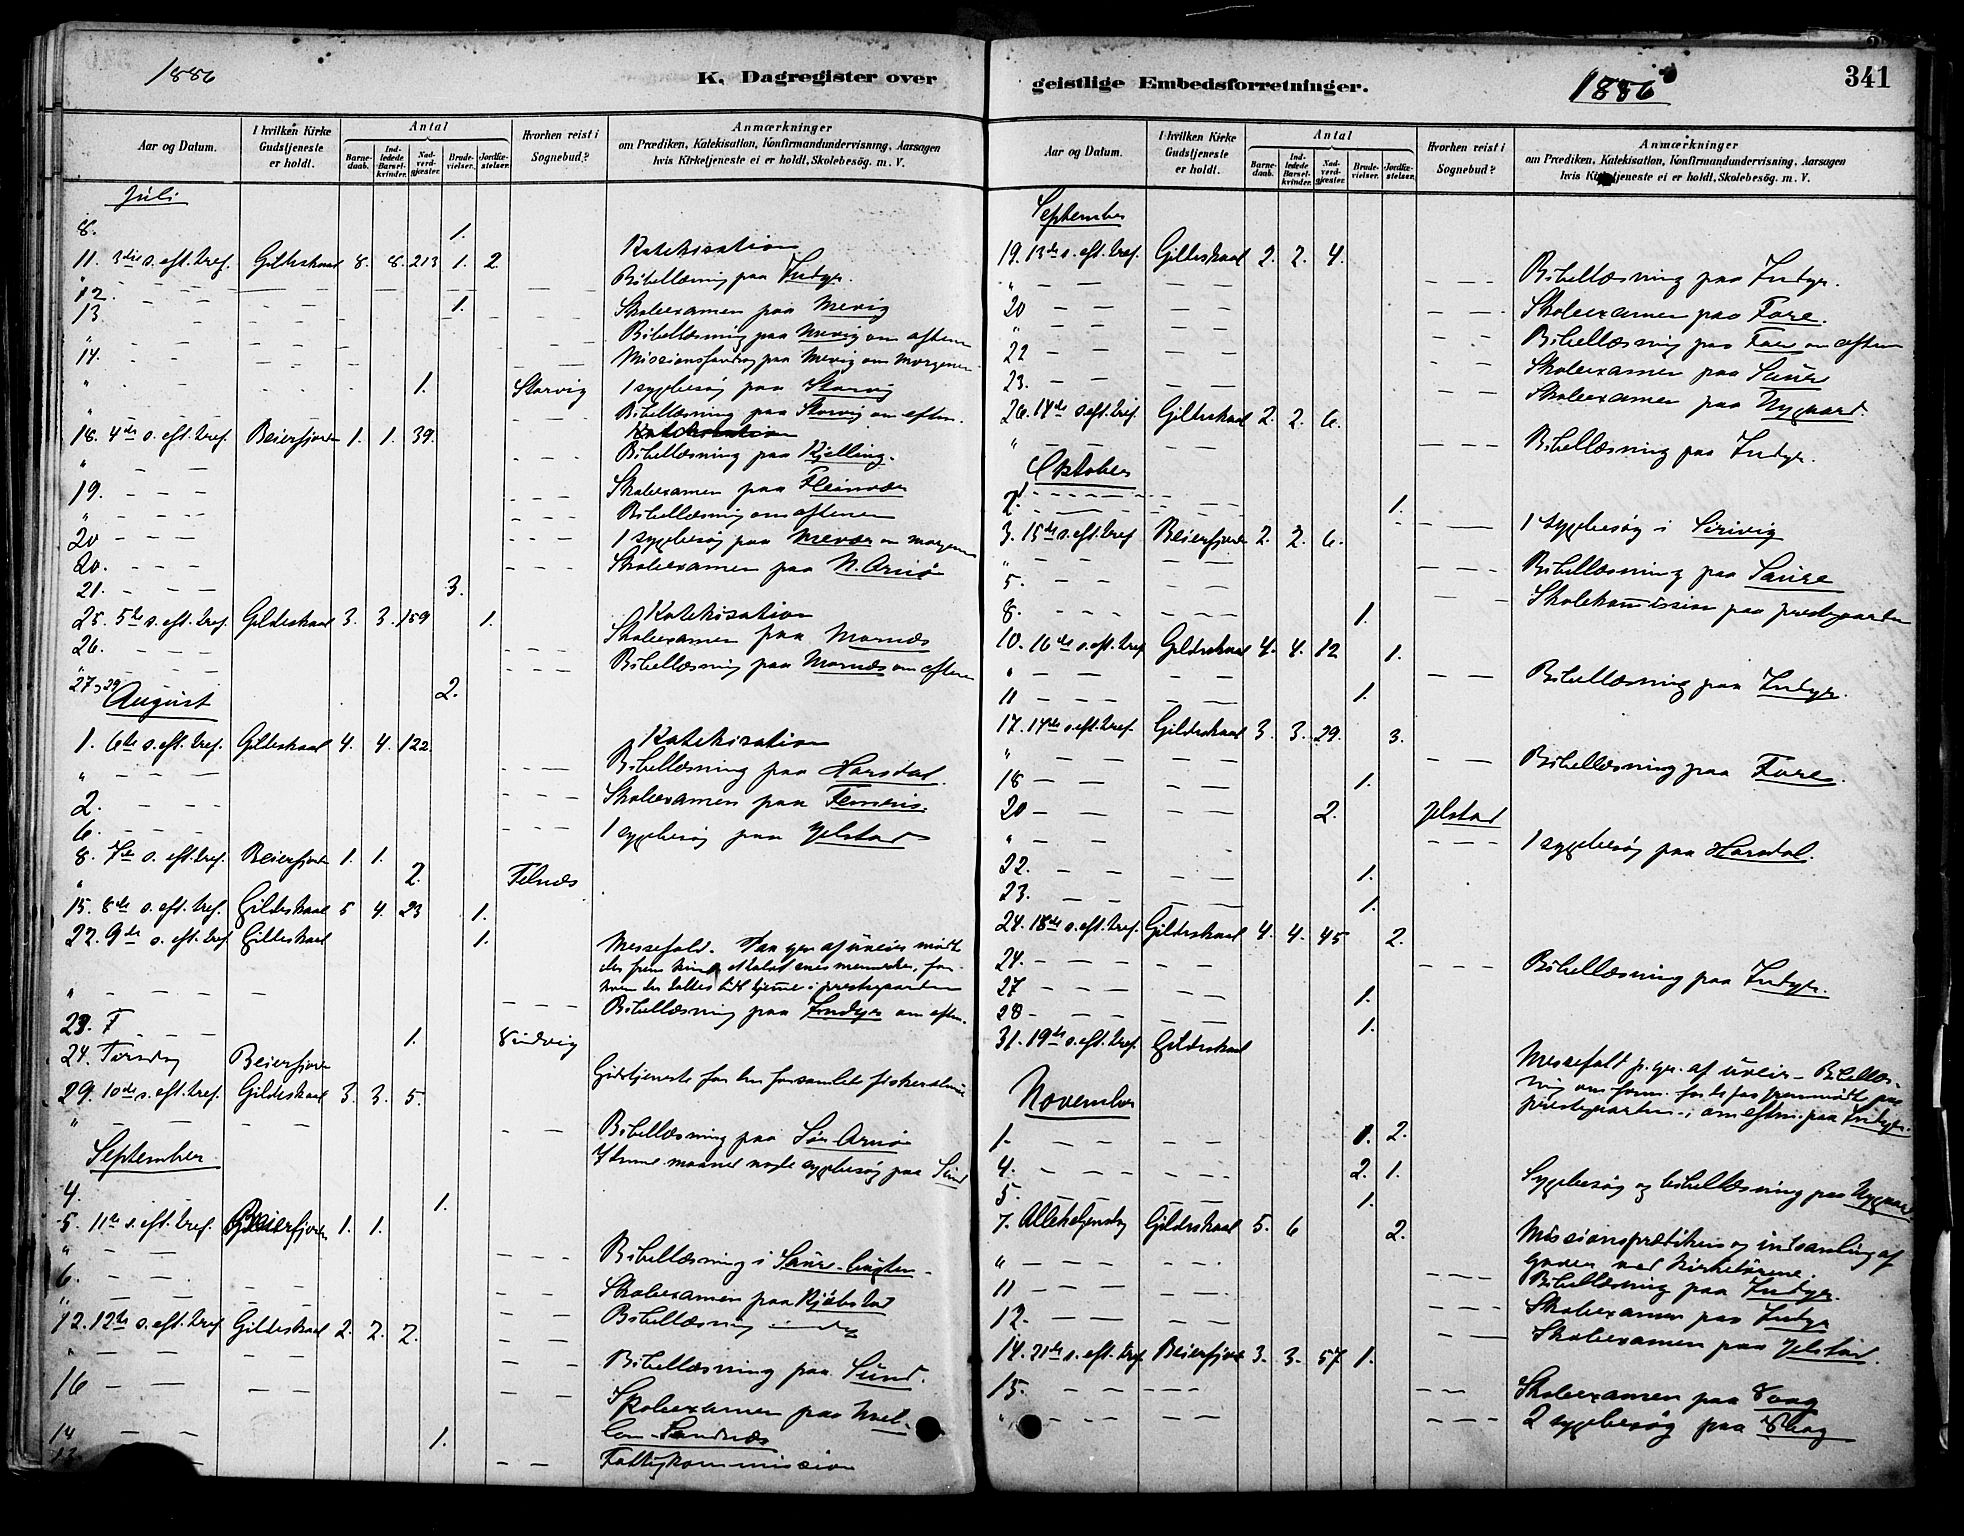 1886
K. Dagregister over
Aar og Datum.
I hvilken Kirke Gudstjeneste er holdt.
Antal
Barnedaab.
Indledede Barselkvinder.
Nadverdgjæster.
Brudevielser.
Jordfæstelser.
Hvorhen reist i Sognebud?
Anmærkninger
om Prædiken, Katekisation, Konfirmandundervisning, Aarsagen
hvis Kirketjeneste ei er holdt, Skolebesög. m. V.
Juli
8. 1.
11. 3die s. eft. tref. Gildeskaal 8. 8. 213 1. 2. Katekisation
" Bibellæsning paa Indyr.
12. 1.
13 Skoleexamen paa Mevig
" Bibellæsning paa Mevig om aftenen
14. Missionsforedrag paa Mevig om morgenen
" 1. Storvig 1 sygebesøg paa Storvig
" Bibellæsning paa Storvig om aften.
18. 4de s. eft. tref. Beierfjoren 1. 1. 39. Katekisation
" Bibellæsning paa Kjelling.
19. Skoleexamen paa Fleinvær
" Bibellæsning om aftenen
20 1 sygebesøg paa Mevær om morgenen
20. Skoleexamen paa N. Arnø
21. 3.
25. 5te s. eft. tref. Gildeskaal 3. 3. 159 1. Katekisation
26. Skoleexamen paa Mornæs
" Bibellæsning paa Mornæs om aftenen
27, 29 2.
August
1. 6te s. eft. tref. Gildeskaal 4. 4. 122. Katekisation
" Bibellæsning paa Horsdal.
2. Skoleexamen paa Femris.
6. 1 sygebesøg paa Ylstad
8. 7de s. eft. tref. Beierfjoren 1. 1.
" 2. Felnæs
15. 8de s. eft. tref. Gildeskaal 5 4. 23 1.
22. 9de s. eft. tref. Gildeskaal 1. Messefald. Paa gr. af uveir mødt
der frem kun et halvt snes mennesker, for
hvem der holdes lidt hjemme i prestegaarden
" Bibellæsning paa Indyr om aften.
23. F 1. Sundvig
24. Torsdag Beierfjoren Gudstjeneste for den forsamlede fiskeralmue
29. 10de s. eft. tref. Gildeskaal 3. 3. 5.
" Bibellæsning paa Sør Arnø
September I denne maaned nogle sygebesøg paa Sund
4. 1.
5. 11te s. eft. tref. Beierfjoren 1. 1.
" Bibellæsning i Saura-bugten
6. Skoleexamen paa Kjøbstad
" Bibellæsning
12. 12te s. eft. tref. Gildeskaal 2. 2. 2.
" Bibellæsning paa Sund.
16 Skoleexamen paa
14 1. Sandnæs
13. Fattigkommission
geistlige Embedsforretninger.
1886
341
Aar og Datum.
I hvilken Kirke Gudstjeneste er holdt.
Antal
Barnedaab.
Indledede Barselkvinder.
Nadverdgjæster.
Brudevielser.
Jordfæstelser.
Hvorhen reist i Sognebud?
Anmærkninger
om Prædiken, Katekisation, Konfirmandundervisning, Aarsagen
hvis Kirketjeneste ei er holdt, Skolebesög. m. V.
September
19. 13de s. eft. tref. Gildeskaal 2. 2. 4.
" Bibellæsning paa Indyr.
20 Skoleexamen paa Fore.
" Bibellæsning paa Fore om aften
22 Skoleexamen paa Saura
23. Skoleexamen paa Nygaard.
26. 14de s. eft. tref. Gildeskaal 2. 2. 6.
" Bibellæsning paa Indyr.
Oktober
2. 1. 1 sygebesøg i Sirivig
3. 15de s. eft. tref. Beierfjoren 2. 2. 6.
" Bibellæsning paa Saura
5. Skolekommission paa prestegaarden
8. 1.
10. 16de s. eft. tref. Gildeskaal 4. 4. 12 1.
" Bibellæsning paa Indyr.
11 1.
17. 17de s. eft. tref. Gildeskaal 3. 3. 29. 3.
" Bibellæsning paa Fore.
18 1.
20 2. Ylstad
" 1 sygebesøg paa Horsdal.
22. 1.
23. 1.
24. 18de s. eft. tref. Gildeskaal 4. 4. 45 2.
24. Bibellæsning paa Indyr.
27 1.
28 1.
31. 19de s. eft. tref. Gildeskaal Messefald p. gr. af uveir - Bibellæs-
ning om form. for de faa fremmødte paa
prestegaarden - om eftm. paa Indyr.
November
1. 1. 2.
4. 2. 1. Sygebesøg og bibellæsning paa Nygaard.
5. 1.
7. Allehelgensdag Gildeskaal 5. 6 2. Missionsprædiken og indsamling af
gaver ved kirkedørene.
" Bibellæsning paa Indyr.
11 Skoleexamen paa Indyr
12. Skoleexamen paa Ylstad.
14. 21de s. eft. tref. Beierfjoren 3. 3. 57 1.
15. Skoleexamen paa Vaag
" 2 sygebesøg paa